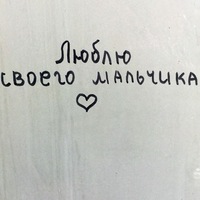 Люблю
своего мальчика
♡